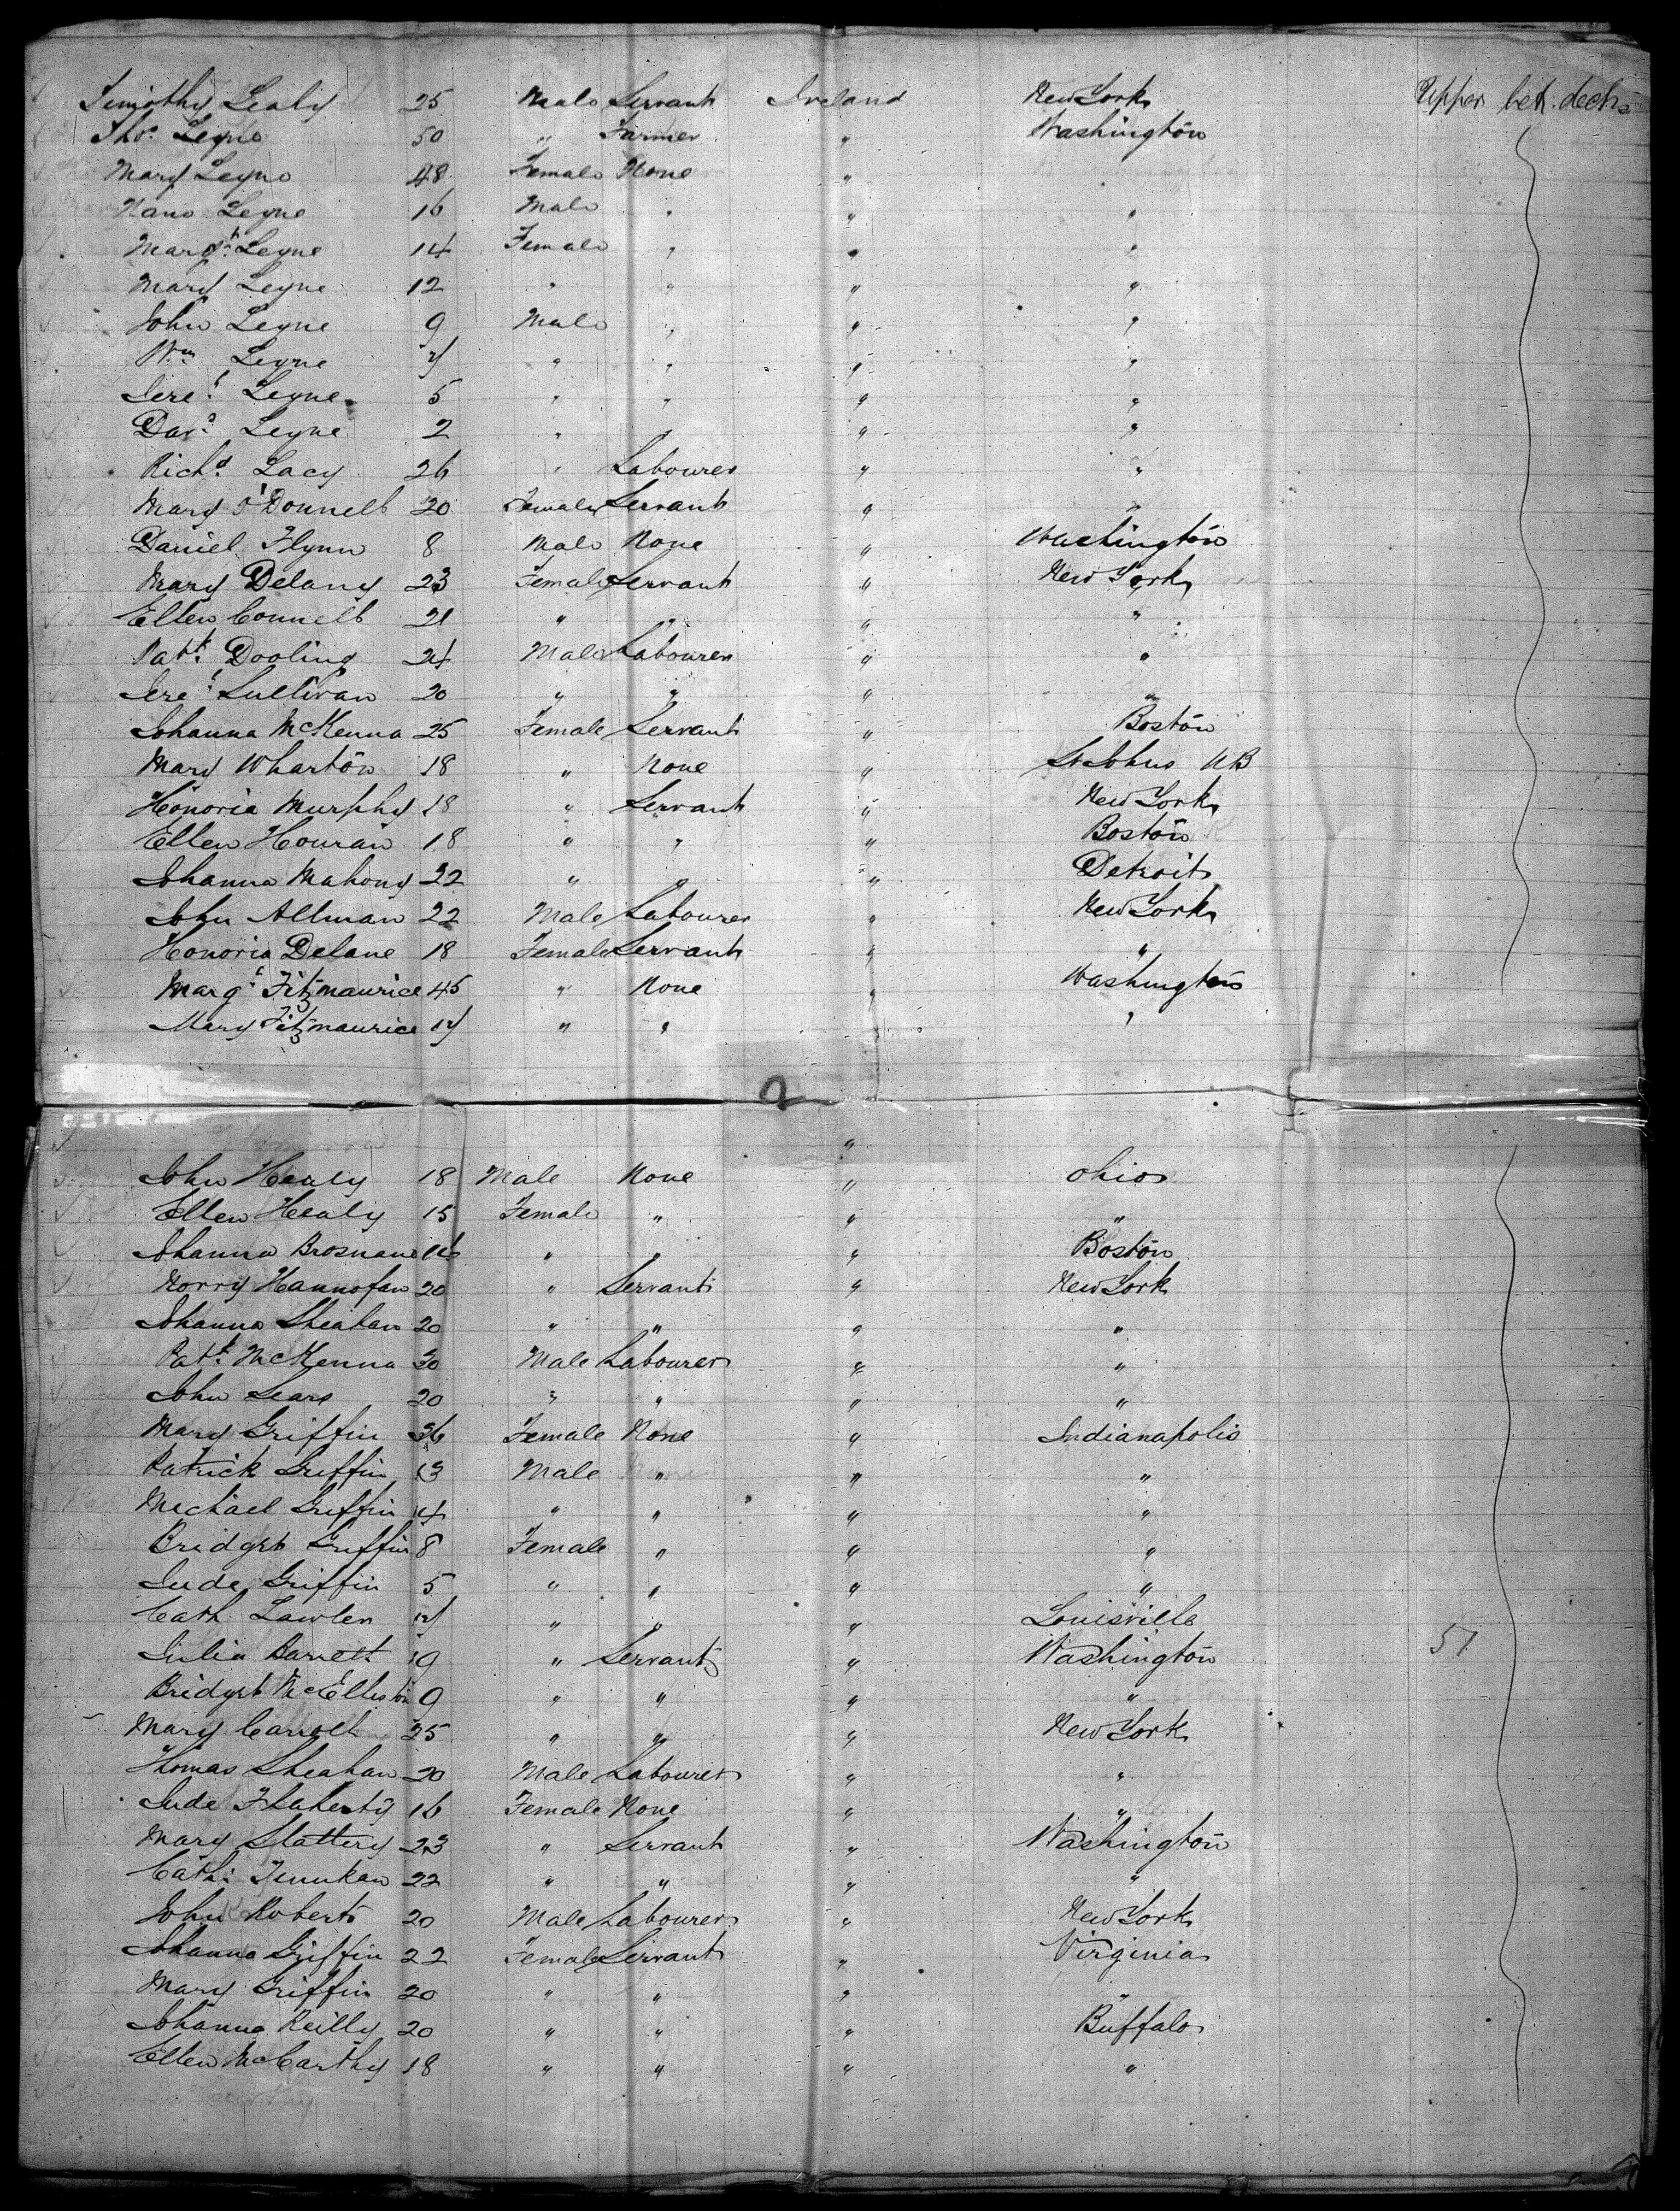 Timothy Lealy 25 Male Servant Ireland New York Upper bet. decks
Thos. Leyne 50 " Farmer " Washington
Mary Leyne 48 Female None "
Nano Leyne 16 Male " " "
Margt. Leyne 14 Female " " "
Mary Leyne 12 " " " "
John Leyne 9 Male " " "
Wm. Leyne 7 " " " "
Jere. Leyne 5 " " " "
Davd. Leyne 2 " " " "
Richd. Lacy 26 " Labourer " "
Mary O'Donnell 20 Female Servant " "
Daniel Flynn 8 Male None " Washington
Mary Delany 23 Female Servant " New York
Ellen Connell 21 " " " "
Patk. Dooling 24 Male Labourer " "
Jere. Sullivan 20 " " " "
Johanna McKenna 25 Female Servant " Boston
Mary Wharton 18 " None " St Johns NB
Honoria Murphy 18 " Servant " New York
Ellen Houran 18 " " " Boston
Johanna Mahony 22 " " " Detroit
John Allman 22 Male Labourer " New York
Honoria Delane 18 Female Servant " "
Margt. Fitzmaurice 45 " None " Washington
Mary Fitzmaurice 17 " " " "
2
"
John Healy 18 Male None " Ohio
Ellen Healy 15 Female " " "
Johanna Brosnane 16 " " " Boston
Norry Hannofan 20 " Servant " New York
Johanna Sheahan 20 " " " "
Patk. McKenna 30 Male Labourer " "
John Sears 20 " " " "
Mary Griffin 36 Female None " Indianapolis
Patrick Griffin 13 Male " " "
Michael Griffin 14 " " " "
Bridget Griffin 8 Female " " "
Jude Griffin 5 " " " "
Cath Lawler 17 " " " Louisville
Julia Barrett 19 " Servant " Washington 51
Bridget McElliston 9 " " " "
Mary Carroll 25 " " " New York
Thomas Sheahan 20 Male Labourer " "
Jude Flaherty 16 Female None " "
Mary Slattery 23 " Servant " Washington
Cath. 22 " " " "
John Roberts 20 Male Labourer " New York
Johanna Griffin 22 Female Servant " Virginia
Mary Griffin 20 " " " "
Johanna Reilly 20 " " " Buffalo
Ellen McCarthy 18 " " " "